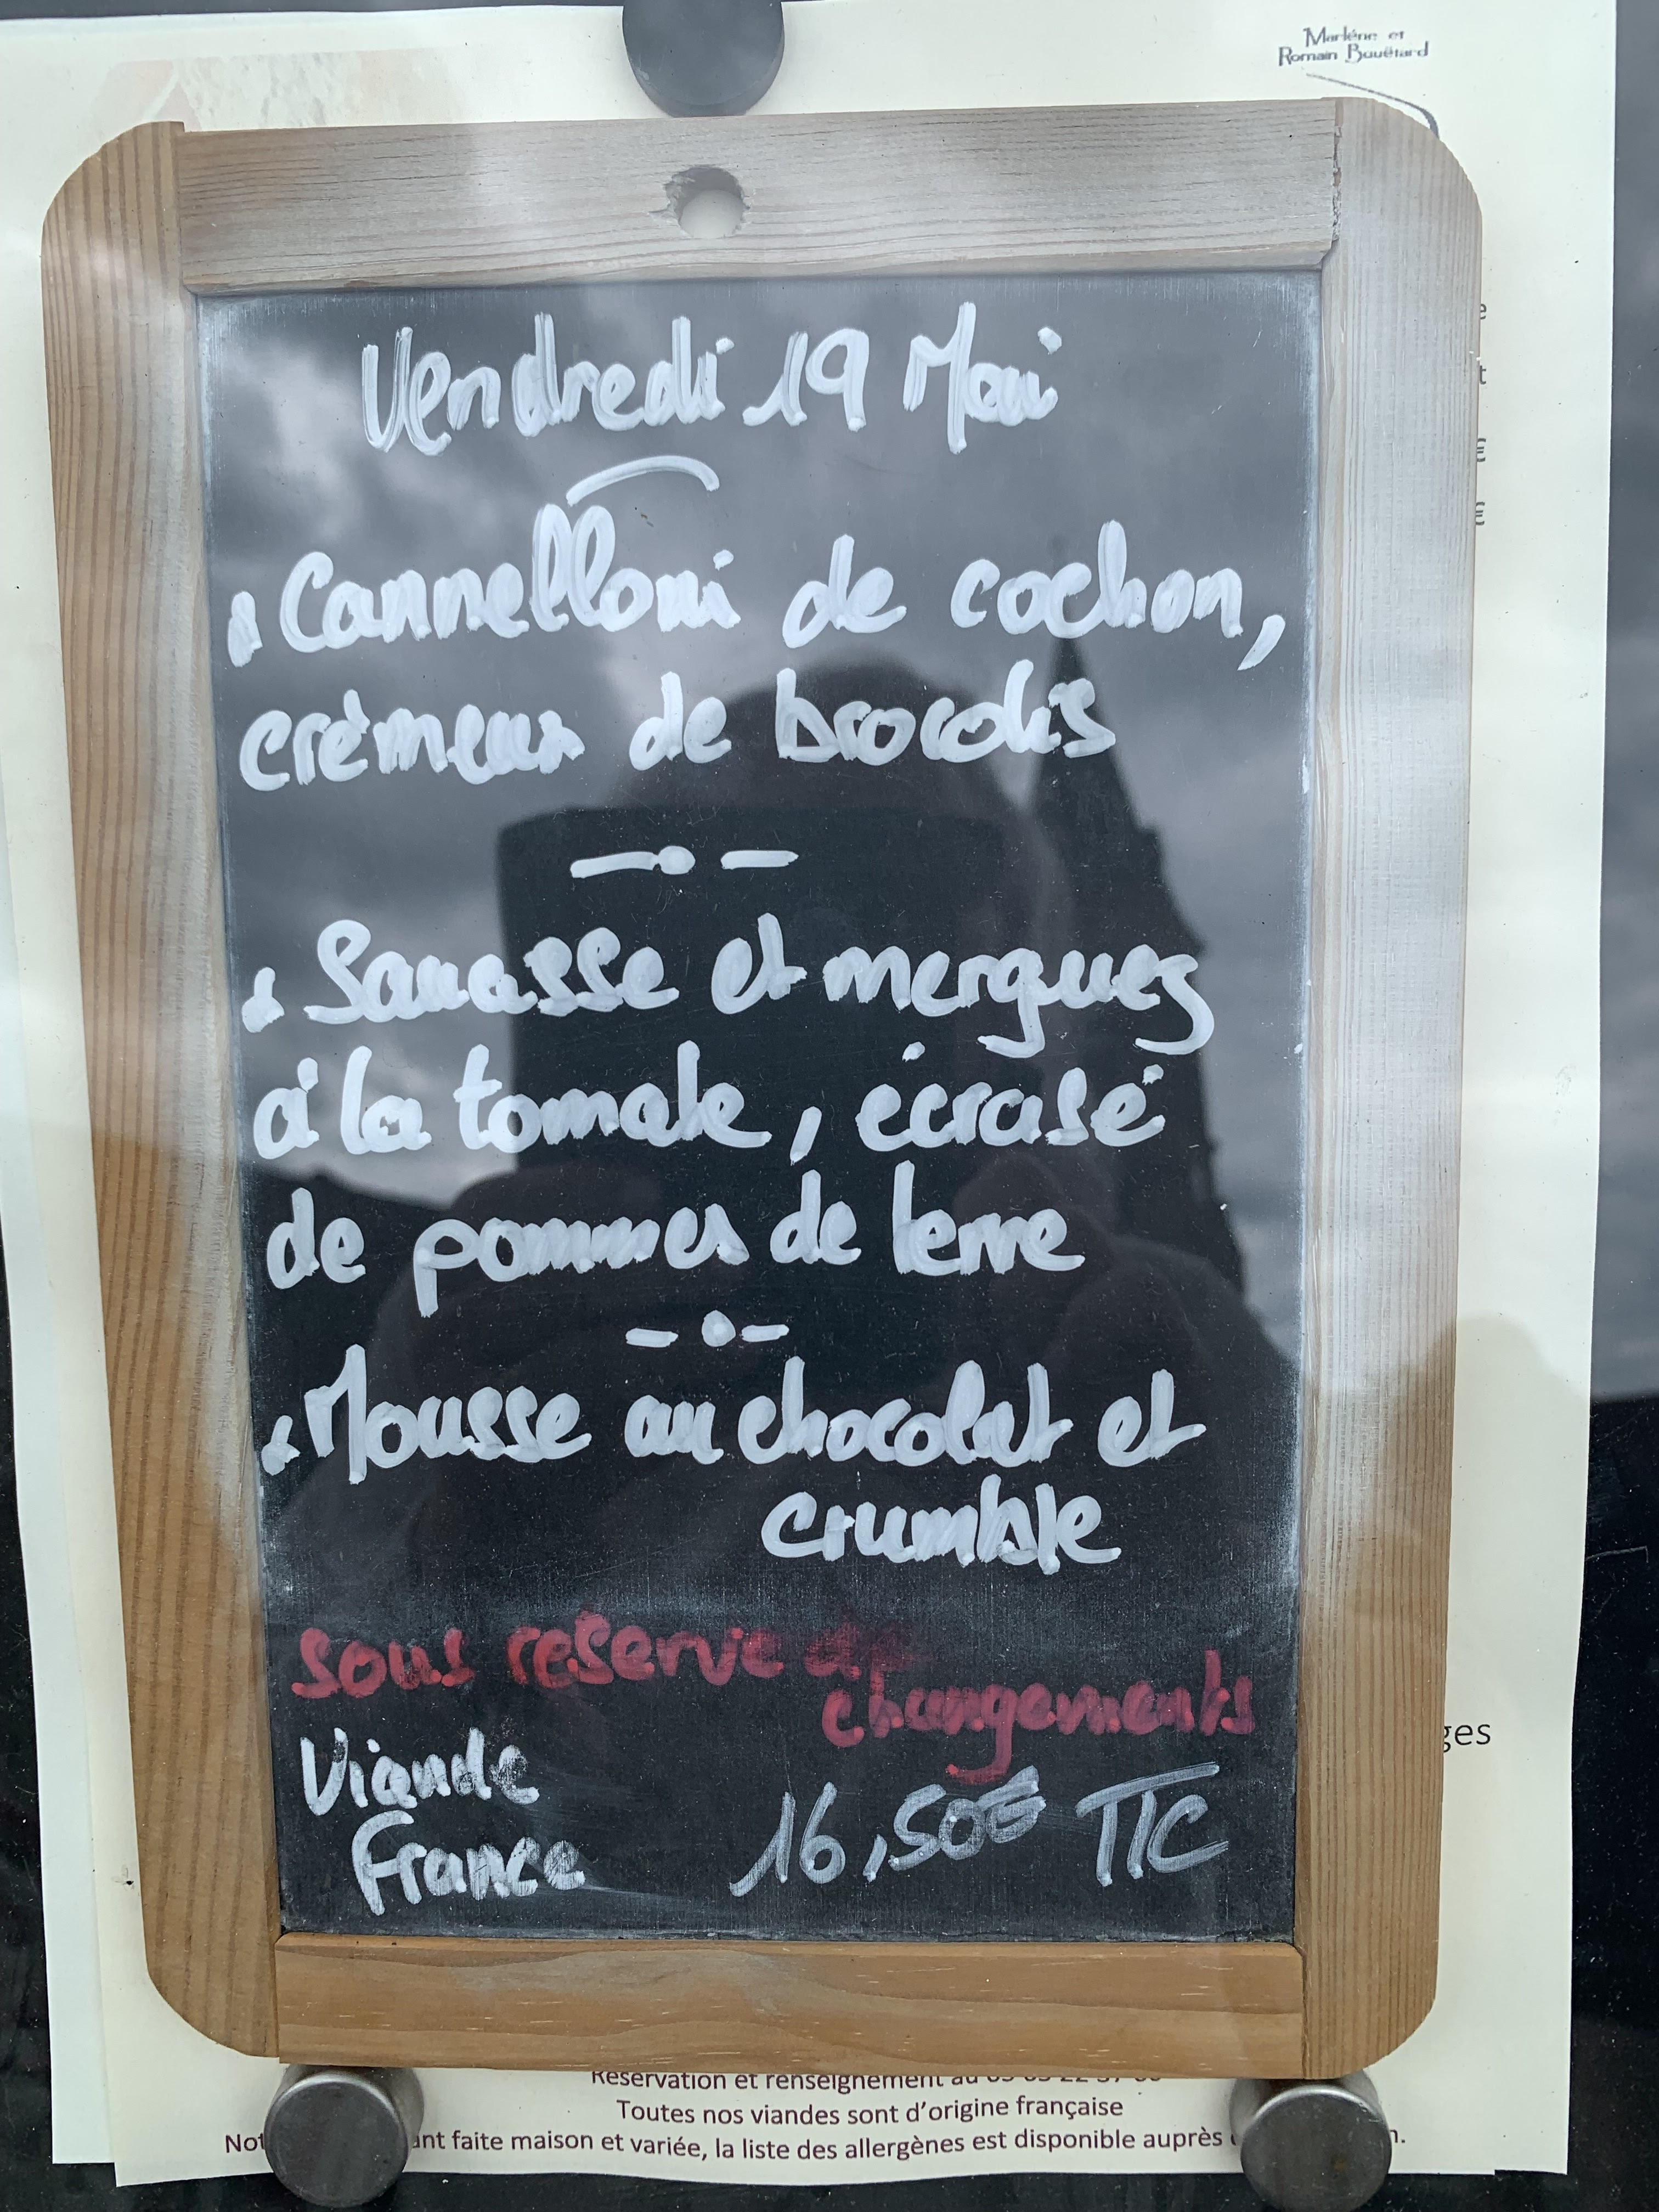 Marlène et
Romain Bouëtard
Vendredi 19 Mai
Cannelloni de cochon,
crèmeux de brocolis
Saucisse et mergues
à la tomate, écrasé
de pommes de terre
Mousse au chocolat et
crumble
sous reserve de
changements
Viande
France
16,50€ TTC
e
t
€
€
ges
Réservation et renseignement au
Toutes nos viandes sont d'origine française
Not ant faite maison et variée, la liste des allergènes est disponible auprès n.